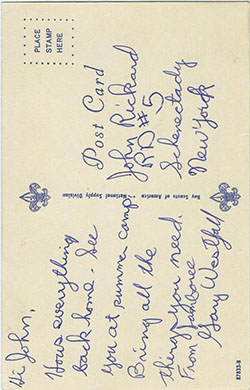 Hi John,
Hows everything
back home. See
you at summer camp.
Bring all the
things you need.
From Jamboree
Gary Westfall
Boy Scouts of America • National Supply Division
PLACE
STAMP
HERE
Post Card
John Rickard
RD#5
Schenectady
New York